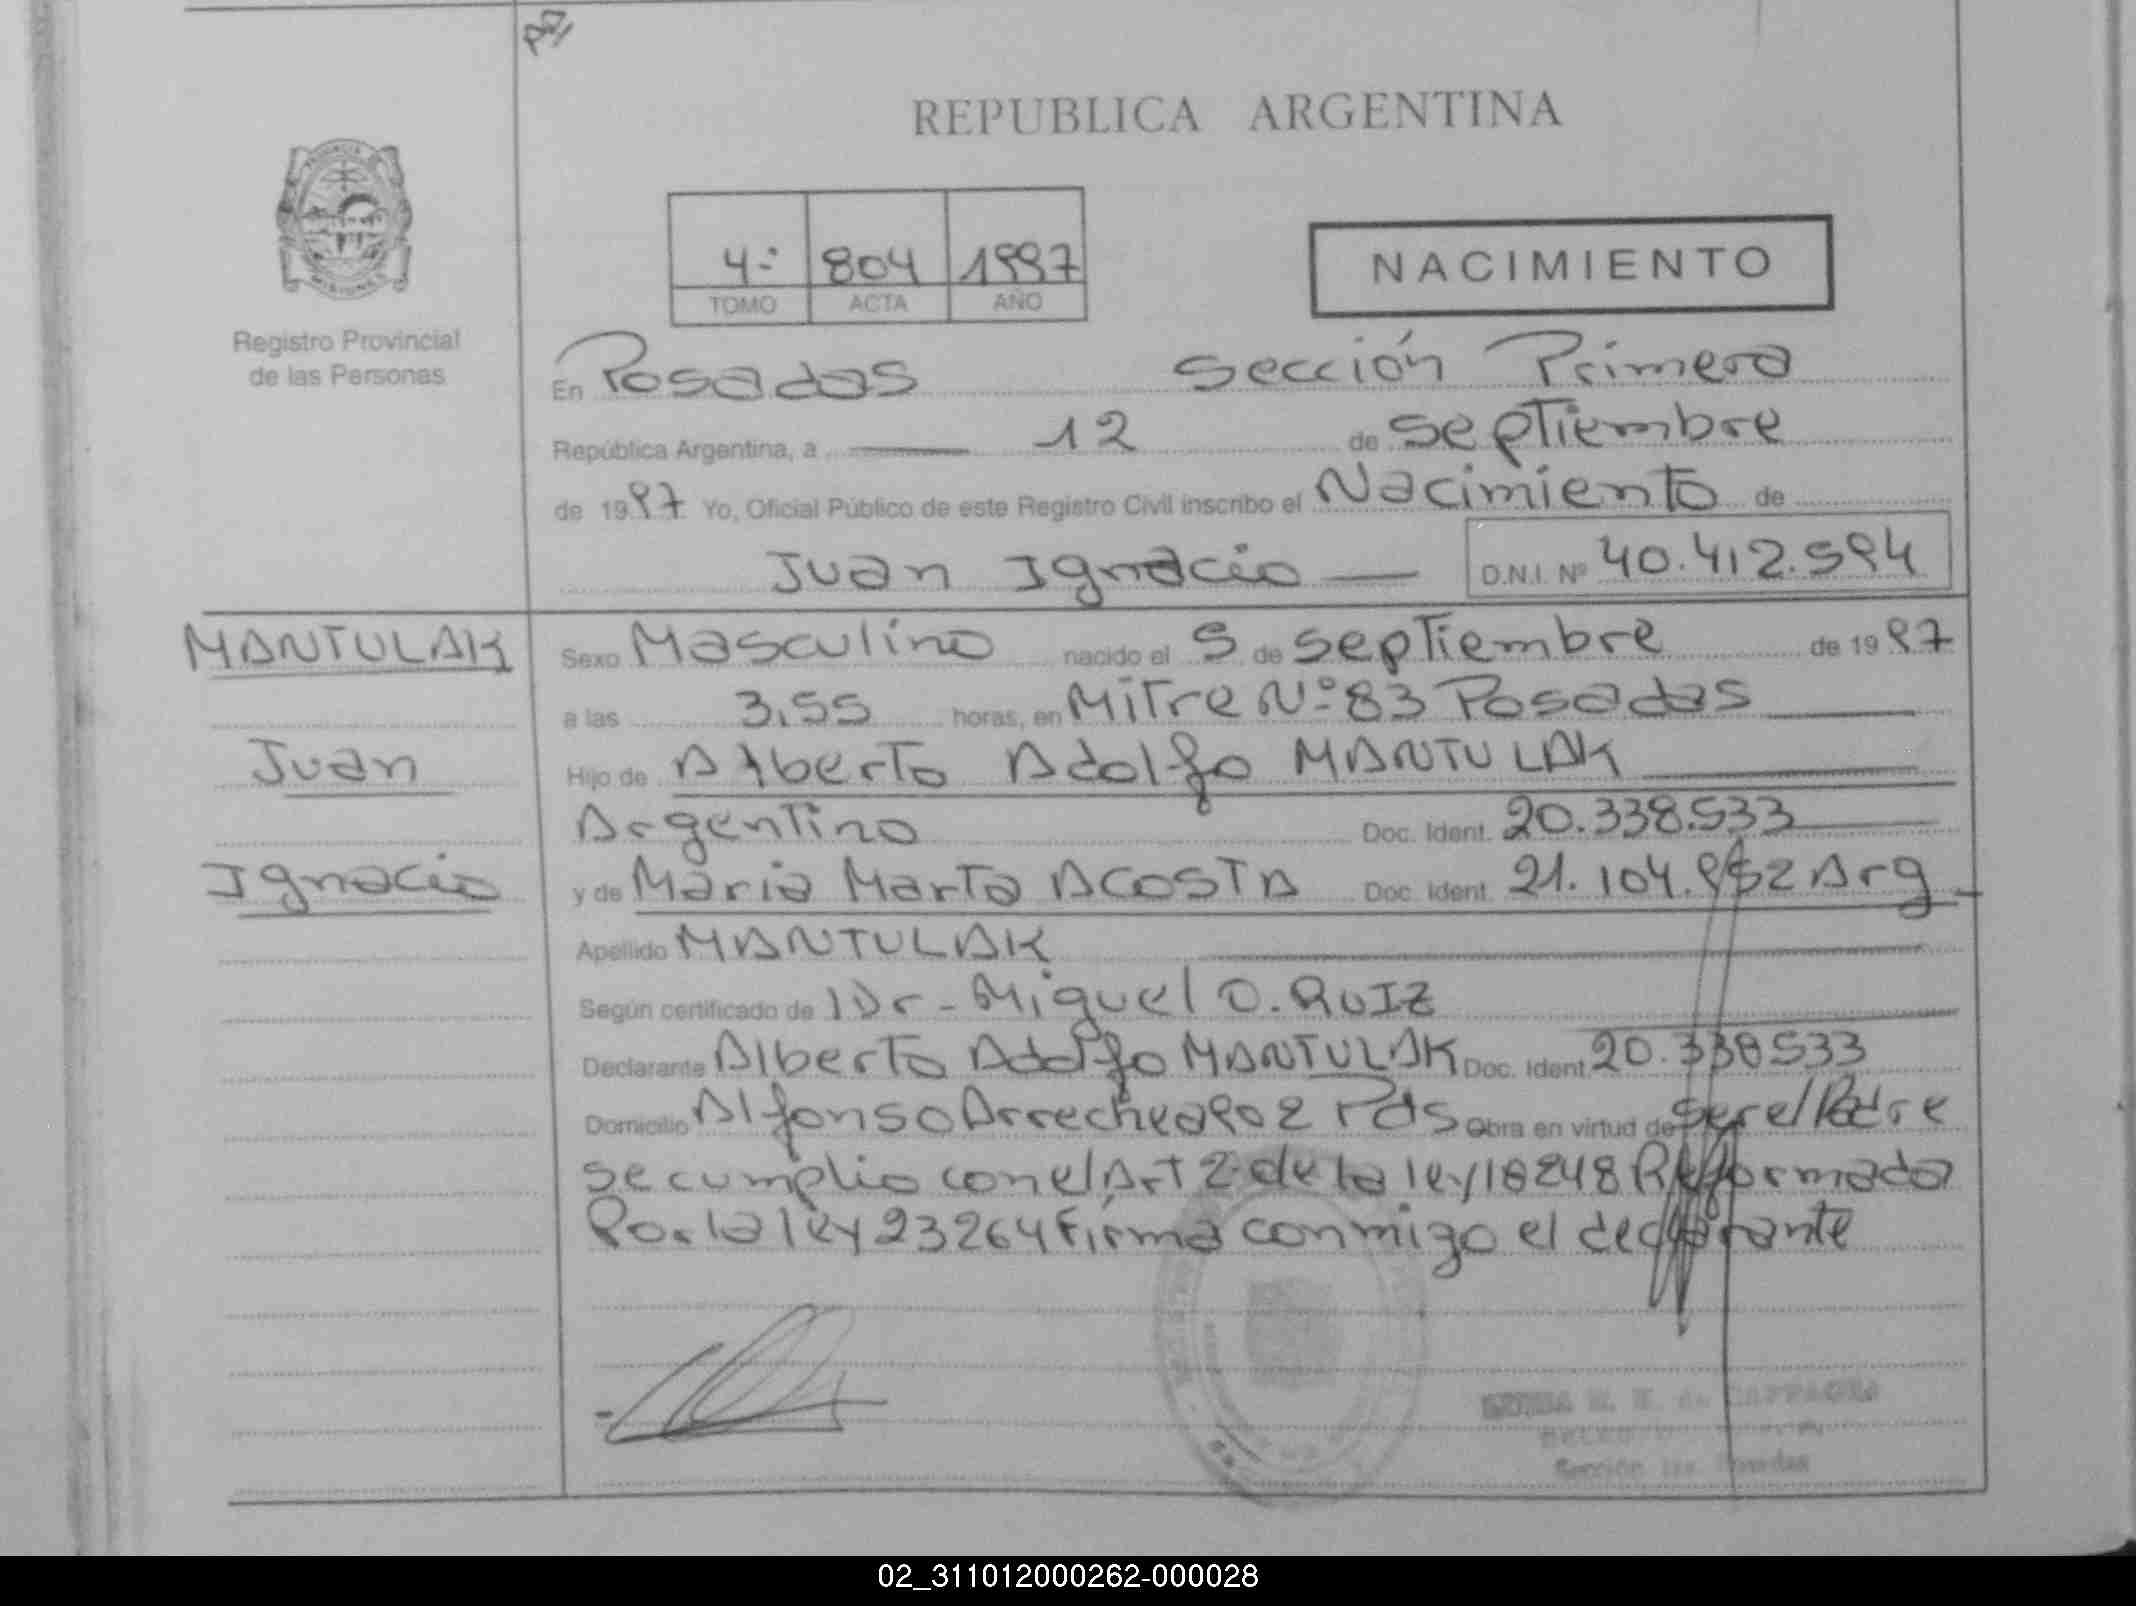 REPUBLICA ARGENTINA
PROVINCIA DE
MISIONES
Registro Provincial
de las Personas
4º 804 1997
TOMO ACTA AÑO
NACIMIENTO
En Posadas Sección Primera
República Argentina, a 12 de Septiembre
de 1997 Yo, Oficial Público de este Registro Civil inscribo el Nacimiento de
Juan Ignacio D.N.I. Nº 40.412.594
MANTULAK
Juan
Ignacio
Sexo Masculino nacido el 5 de Septiembre de 1997
a las 3,55 horas, en Mitre Nº 83 Posadas
Hijo de Alberto Adolfo MANTULAK
Argentino Doc. Ident. 20.338.533
y de Maria Marta ACOSTA Doc. Ident. 21.104.952 Arg
Apellido MANTULAK
Según certificado de Dr - Miguel O. RUIZ
Declarante Alberto Adolfo MANTULAK Doc. Ident. 20.338533
Domicilio Alfonso Arrechea 902 Pdas Obra en virtud de Ser el Padre
Se cumplio con el Art 2º de la ley 18248 Reformada
Por la ley 23264 Firma conmigo el declarante
Sección 1ra. Posadas
02_311012000262-000028